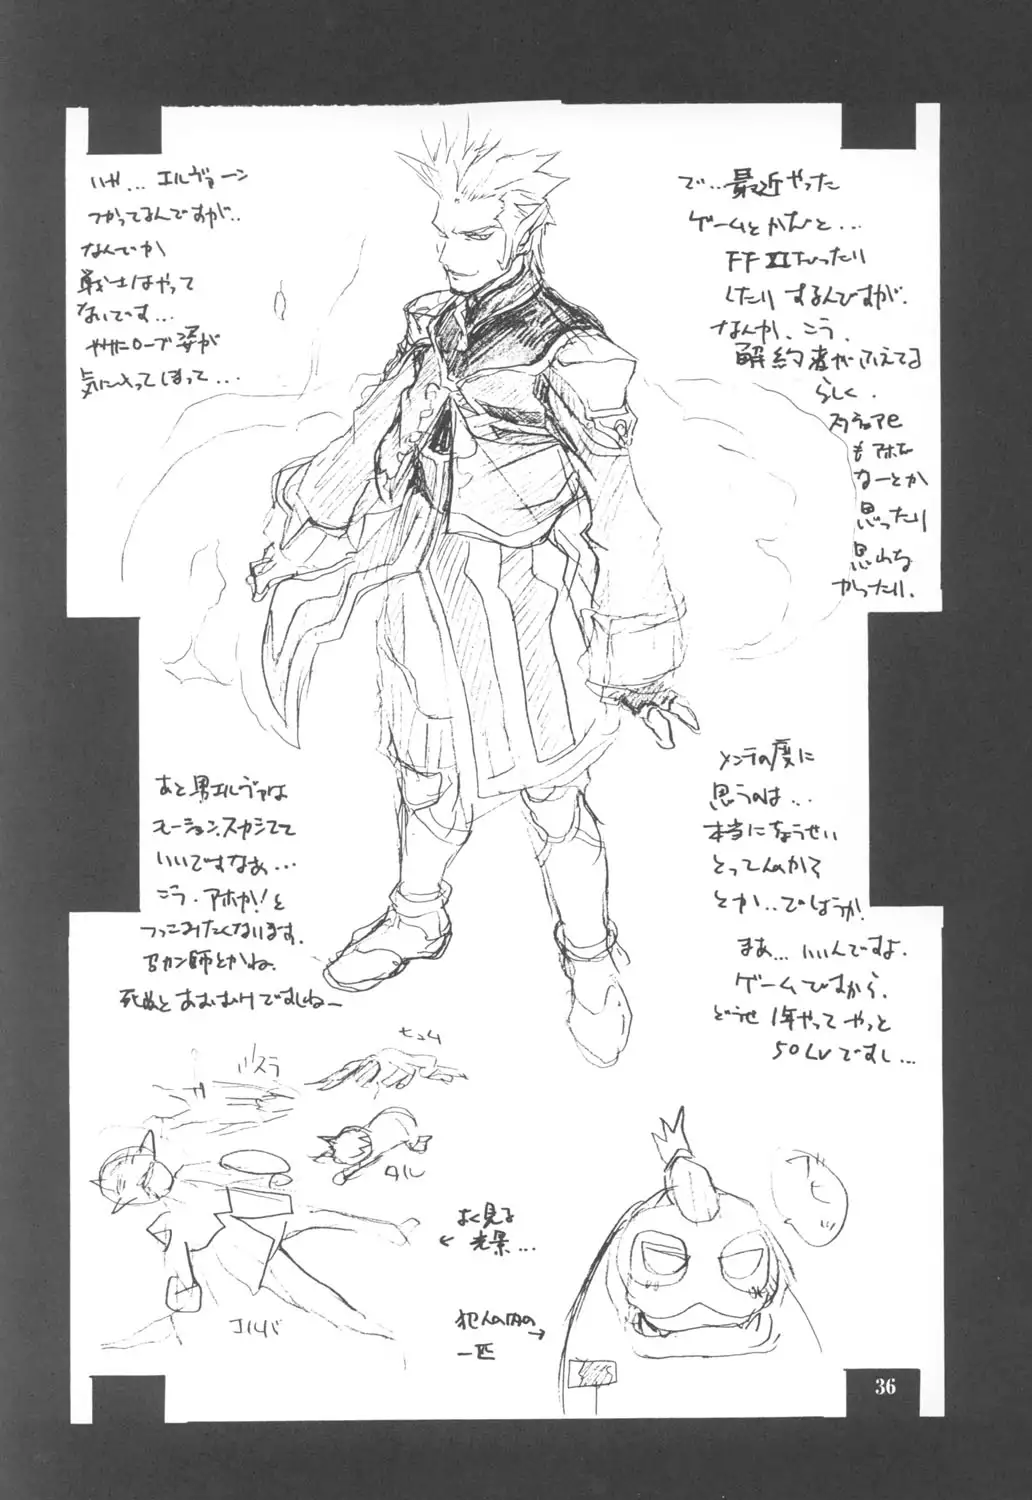 で‥最近やった
ゲームとかひと...
FFⅩⅠひったり
したりするんですが.
なんか、こう.
解約者がふえてる
らしく.
スクウェアも
アホだ
なーとか
思ったり
思わな
かったり.
いや... エルヴァーン
つかってるんですが..
なんでか
戦士はやって
ないです...
やけにローブ姿が
気に入ってしまって...
メンテの度に
思うのは...
本当にちょうせい
とってんのか?
とか..でしょうか.
まあ...いいんですよ.
ゲームですから.
どうせ1年やってやっと
50Lvですし...
あと男エルヴァは
モーションスカシてて
いいですなぁ...
こう.アホか!と
つっこみたくなります.
死ぬとあおむけですしねー
ヒュム
ガルカ
タル
エルバ
よく見る
← 光景...
犯人の内の→
一匹
36